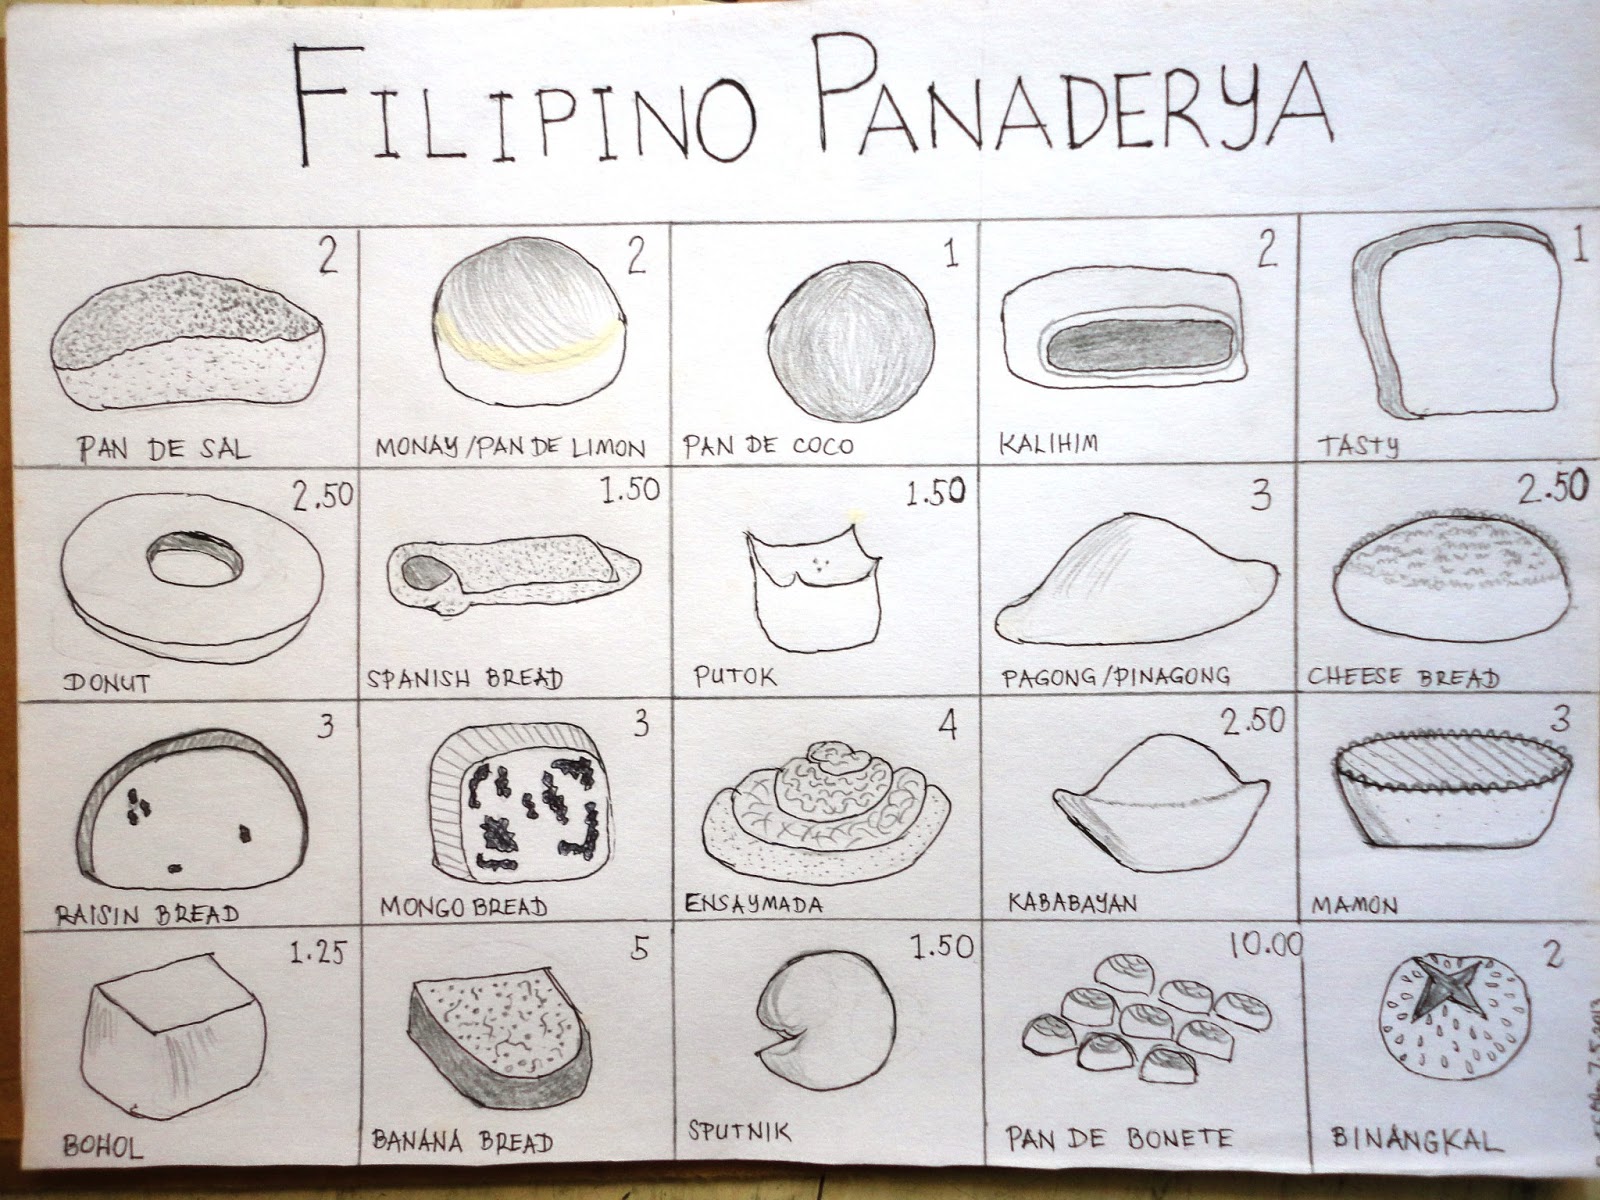 FILIPINO PANADERYA
2
PAN DE SAL
2
MONAY/PAN DE LIMON
1
PAN DE COCO
2
KALIHIM
1
TASTY
2.50
DONUT
1.50
SPANISH BREAD
1.50
PUTOK
3
PAGONG/PINAGONG
2.50
CHEESE BREAD
3
RAISIN BREAD
3
MONGO BREAD
4
ENSAYMADA
2.50
KABABAYAN
3
MAMON
1.25
BOHOL
5
BANANA BREAD
1.50
SPUTNIK
10.00
PAN DE BONETE
2
BINANGKAL
7.5.2013